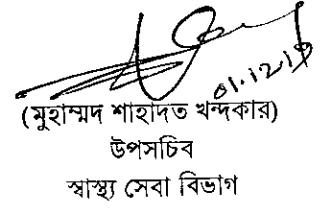 01.12.19
(মুহাম্মদ শাহাদত খন্দকার)
উপসচিব
স্বাস্থ্য সেবা বিভাগ